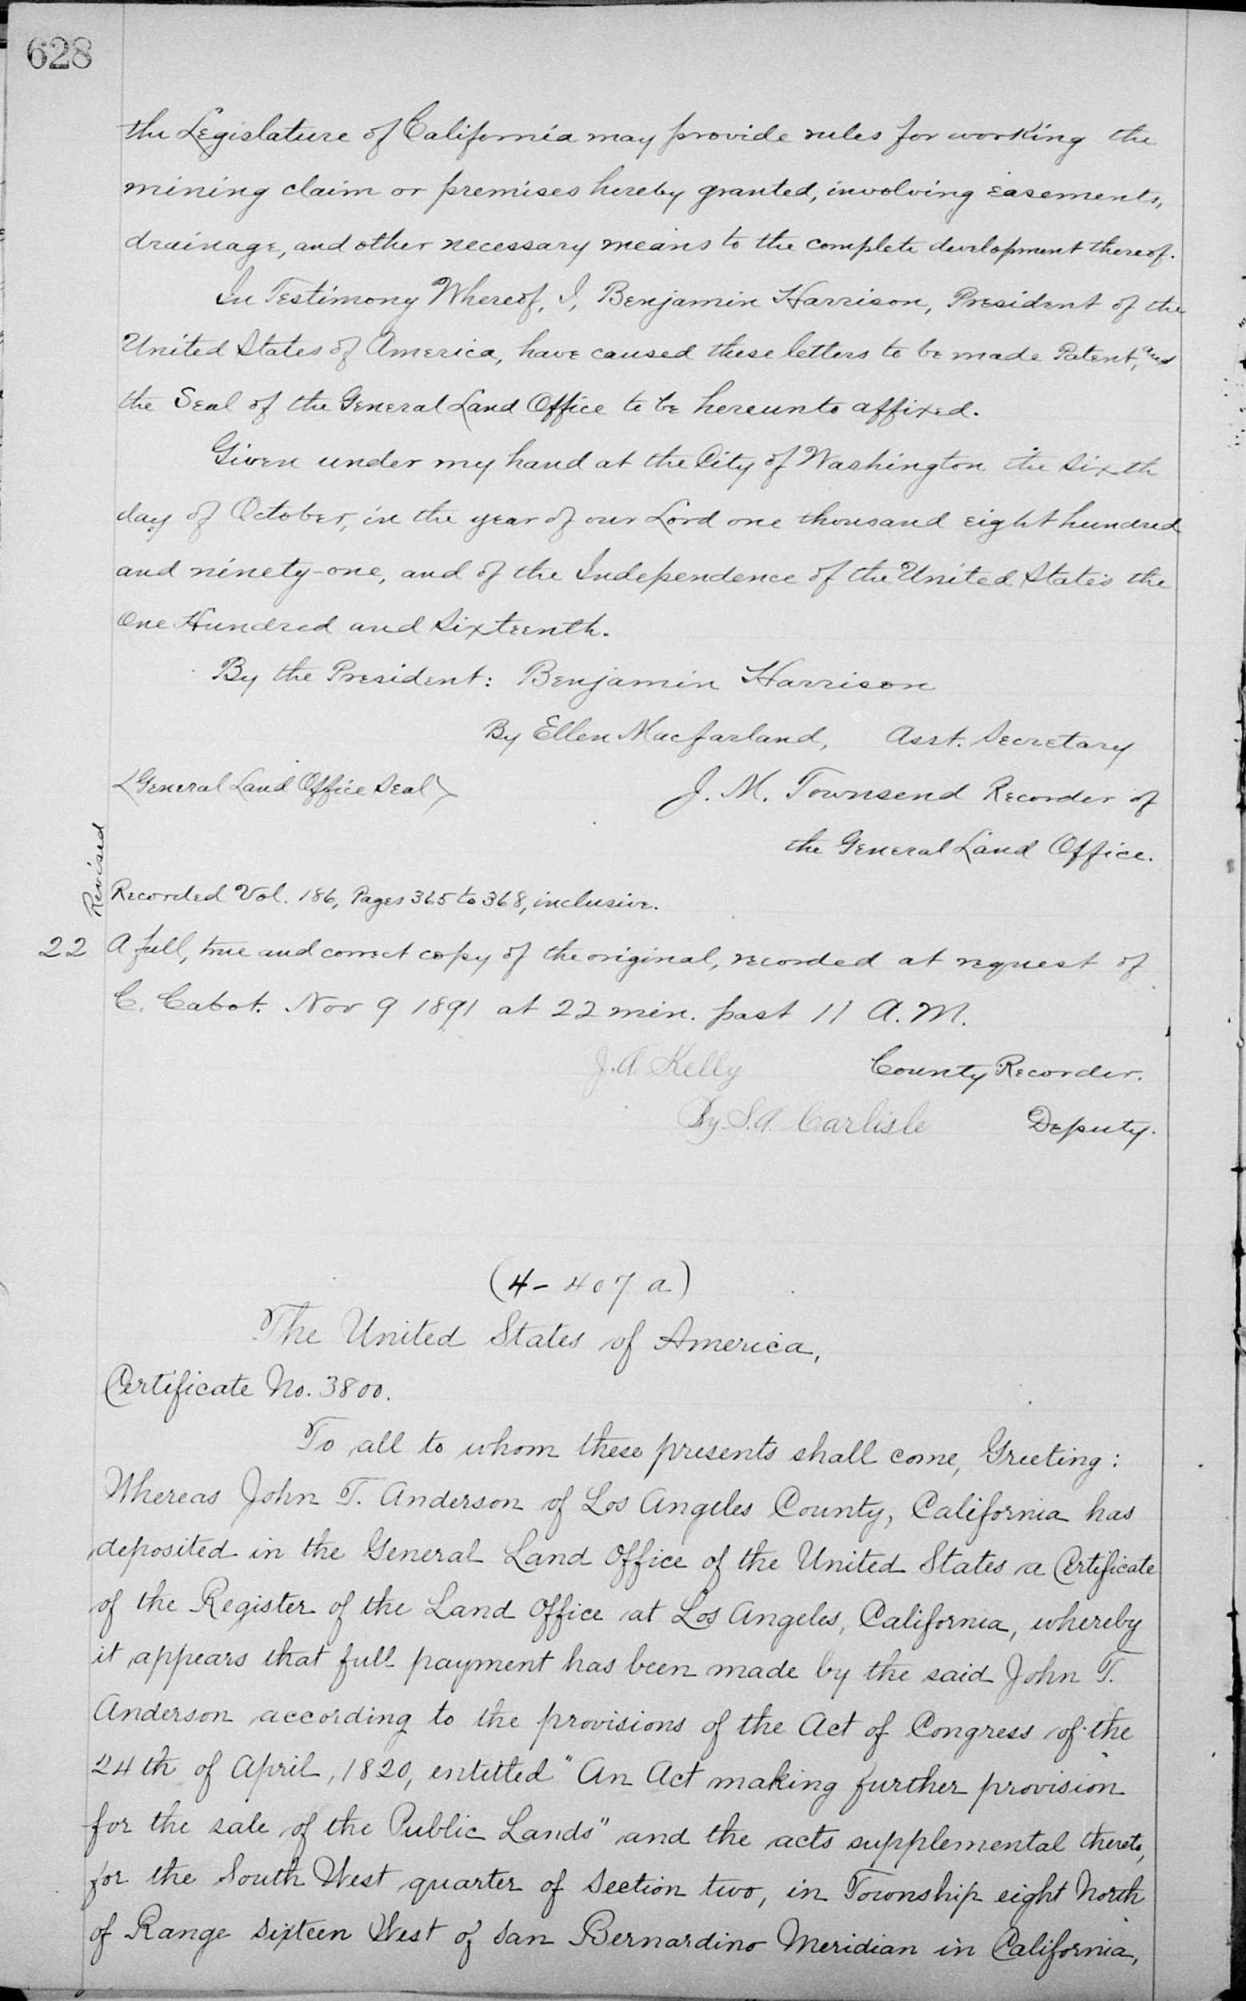 628
the Legislature of California may provide rules for working the
mining claim or premises hereby granted, involving easements,
drainage, and other necessary means to the complete development thereof.
In Testimony Whereof, I, Benjamin Harrison, President of the
United States of America, have caused these letters to be made Patent, and
the Seal of the General Land Office to be hereunto affixed.
Given under my hand at the City of Washington the sixth
day of October, in the year of our Lord one thousand eight hundred
and ninety-one, and of the Independence of the United States the
One Hundred and Sixteenth.
By the President: Benjamin Harrison
By Ellen Macfarland, Asst. Secretary
<General Land Office Seal> J. M. Townsend Recorder of
the General Land Office.
Revised
Recorded Vol. 186, Pages 365 to 368, inclusive.
22 A full, true and correct copy of the original, recorded at request of
C. Cabot. Nov 9 1891 at 22 min. past 11 A.M.
J. A. Kelly County Recorder.
By S. A. Carlisle Deputy.
(4-407 a)
The United States of America,
Certificate No. 3800.
To all to whom these presents shall come, Greeting:
Whereas John T. Anderson of Los Angeles County, California has
deposited in the General Land Office of the United States a Certificate
of the Register of the Land Office at Los Angeles, California, whereby
it appears that full payment has been made by the said John T.
Anderson according to the provisions of the Act of Congress of the
24th of April, 1820, entitled "An Act making further provision
for the sale of the Public Lands" and the acts supplemental thereto,
for the South West quarter of Section two, in Township eight North
of Range sixteen West of San Bernardino Meridian in California,